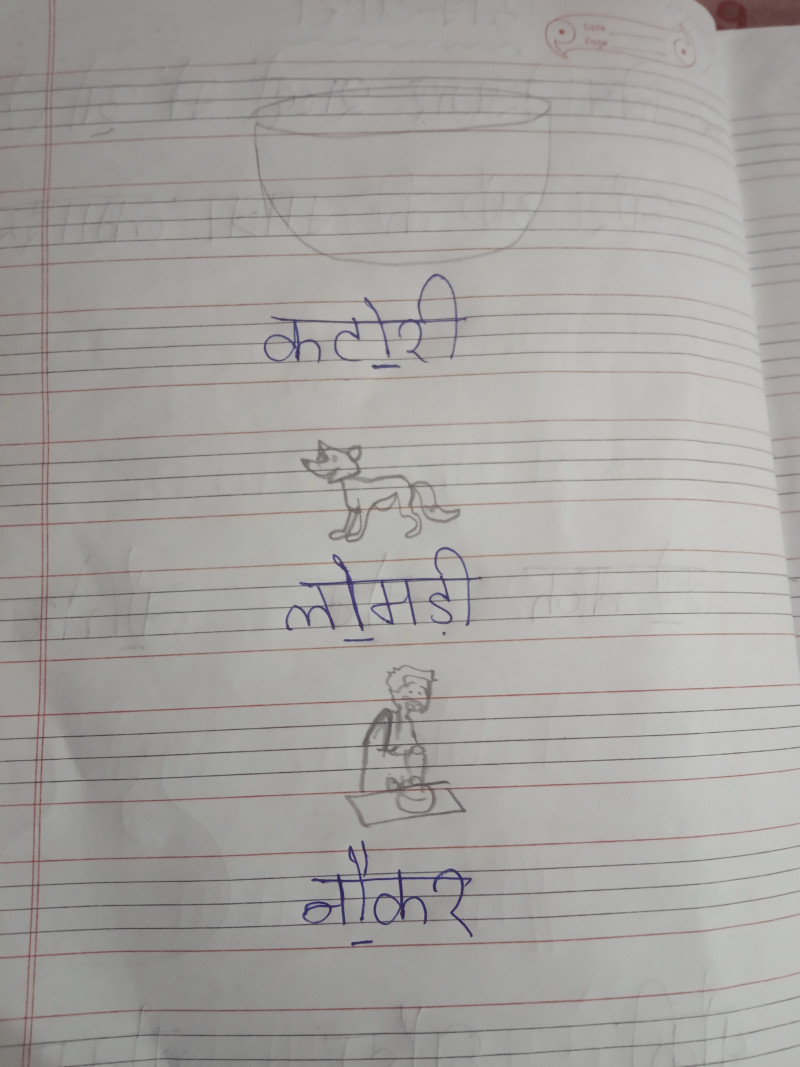 Date
Page
कटोरी
लोमड़ी
नौकर